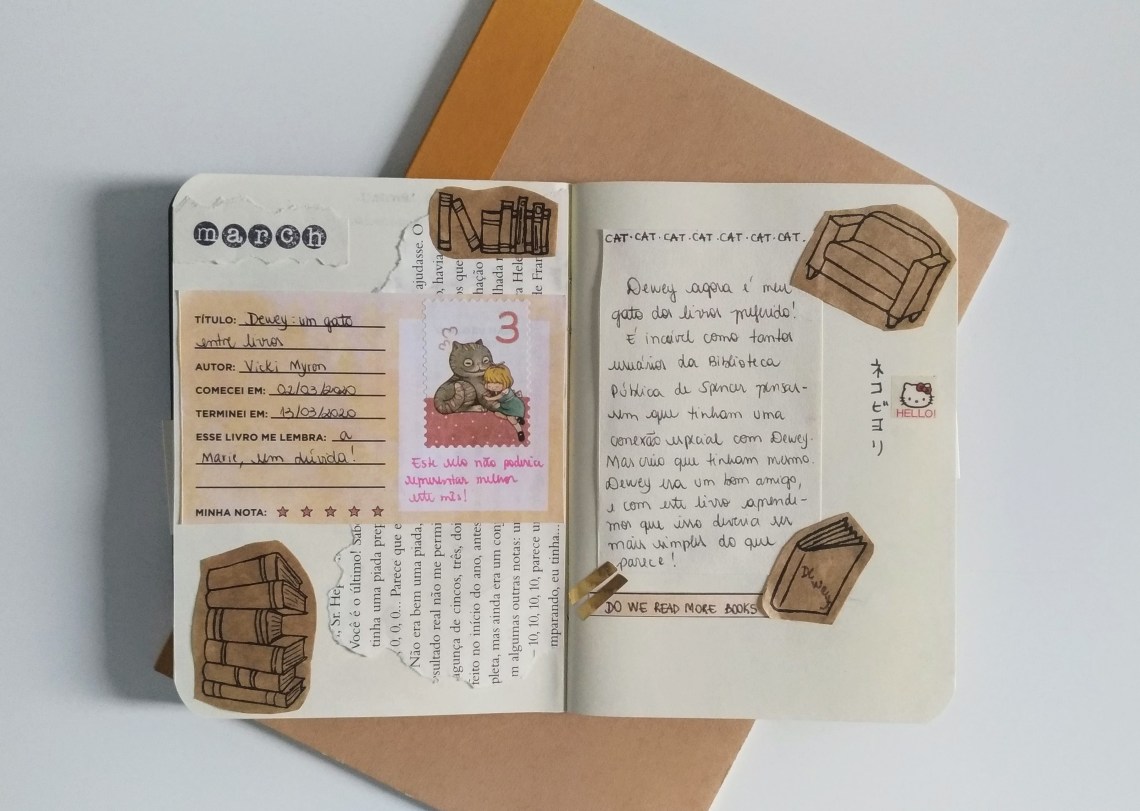 march
TÍTULO: Dewey: um gato
entre livros
AUTOR: Vicki Myron
COMECEI EM: 02/03/2020
TERMINEI EM: 13/03/2020
ESSE LIVRO ME LEMBRA: a
Marie, sem dúvida!
MINHA NOTA:
3
33
Este selo não poderia
representar melhor
este mês!
ajudasse. O
, havia
s que
hação
lhada
a Hele
de Fran
, Sr. He
Você é o último! Sab
tinha uma piada prep
0, 0, 0... Parece que e
Não era bem uma piada,
esultado real não me permi
agunça de cincos, três, doi
feito no início do ano, antes
pleta, mas ainda era um conj
m algumas outras notas: u
– 10, 10, 10, parece um
mparando, eu tinha...
CAT·CAT·CAT·CAT·CAT·CAT·CAT·
Dewey agora é meu
gato dos livros preferido!
É incrível como tantos
usuários da Biblioteca
Pública de Spencer pensar-
em que tinham uma
conexão especial com Dewey.
Mas creio que tinham mesmo.
Dewey era um bom amigo,
e com este livro aprende-
mos que isso deveria ser
mais simples do que
parece!
Dewey
DO WE READ MORE BOOKS
ネコビヨリ
HELLO!